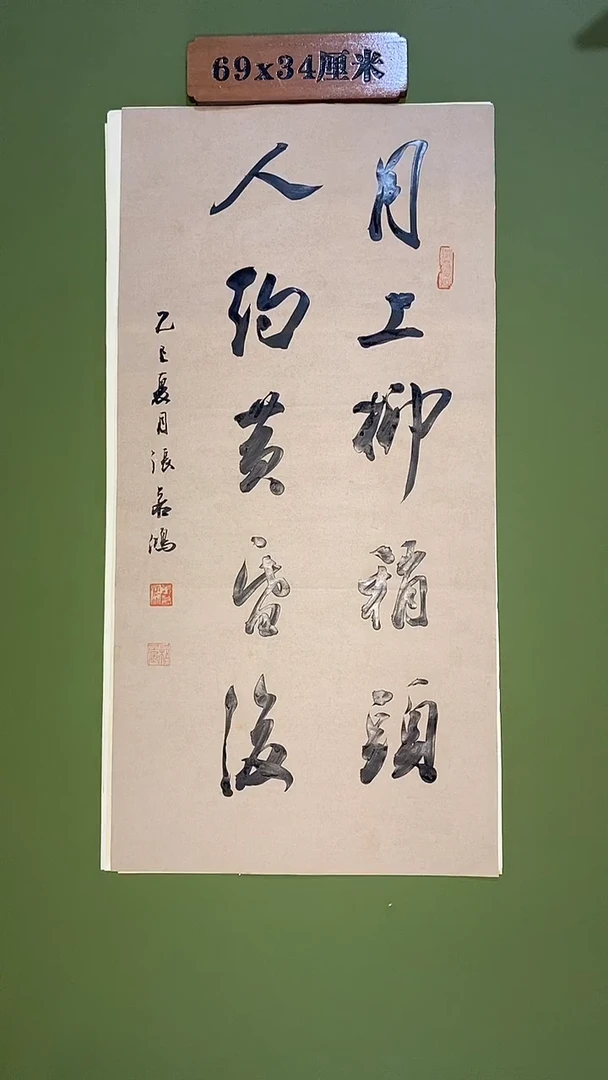 69x34厘米
月上柳稍頭
人約黄昏後
乙巳夏月張嘉鴻